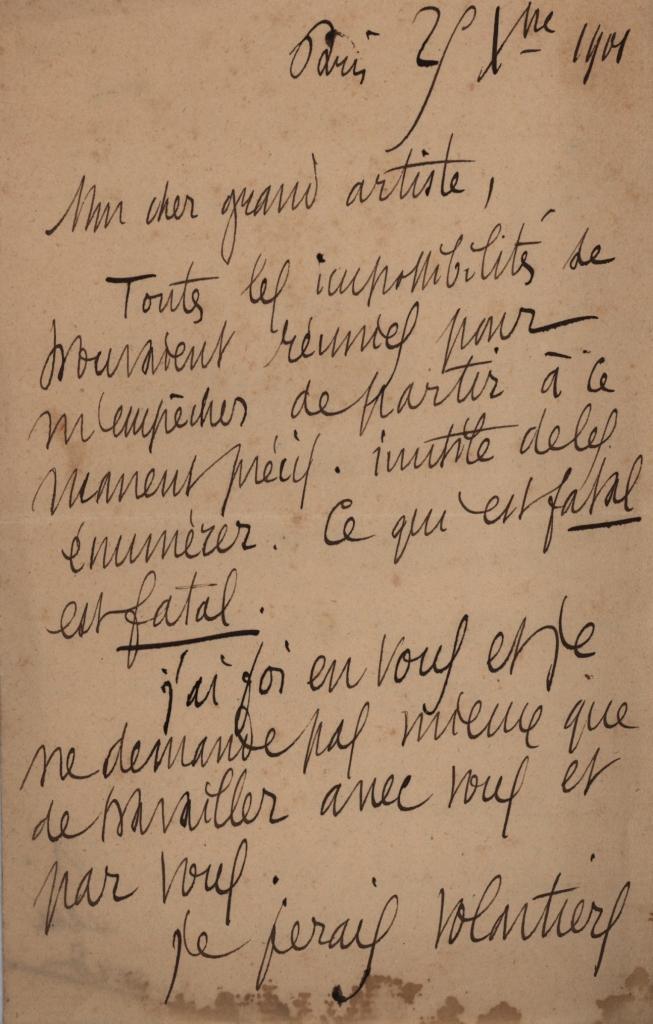 Paris 25 Xbre 1901
Mon cher grand artiste,
Toutes les impossibilités se
trouvaient réunies pour
m'empêcher de partir à ce
moment précis. inutile de les
énumérer. Ce qui est fatal
est fatal.
j'ai foi en vous et je
ne demande pas mieux que
de travailler avec vous et
par vous.
Je ferais volontiers